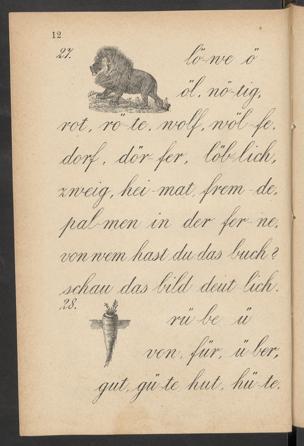 12
27.
lö-we ö
öl, nö-tig,
rot, rö-te, wolf, wöl-fe,
dorf, dör-fer, löb-lich,
zweig, hei-mat, frem-de,
pal-men in der fer-ne,
von wem hast du das buch?
schau das bild deut-lich.
28.
rü-be ü
von, für, ü-ber,
gut, gü-te, hut, hü-te.